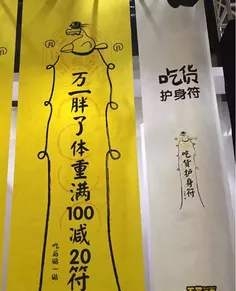 万一胖了体重满100减20符
吃货
护身符
吃货护身符